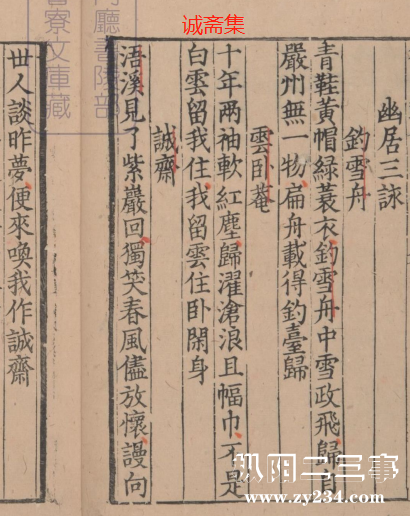 诚斋集
幽居三詠
釣雪舟
青鞋黃帽綠蓑衣釣雪舟中雪政飛歸自
嚴州無一物扁舟載得釣臺歸
雲卧菴
十年两袖軟紅塵歸濯滄浪且幅巾不是
白雲留我住我留雲住卧閑身
誠齋
浯溪見了紫巖回獨笑春風儘放懷謾向
丗人談昨夢便來喚我作誠齋
廳書陵部
書寮文庫藏
枞阳二三事
www.zy234.com